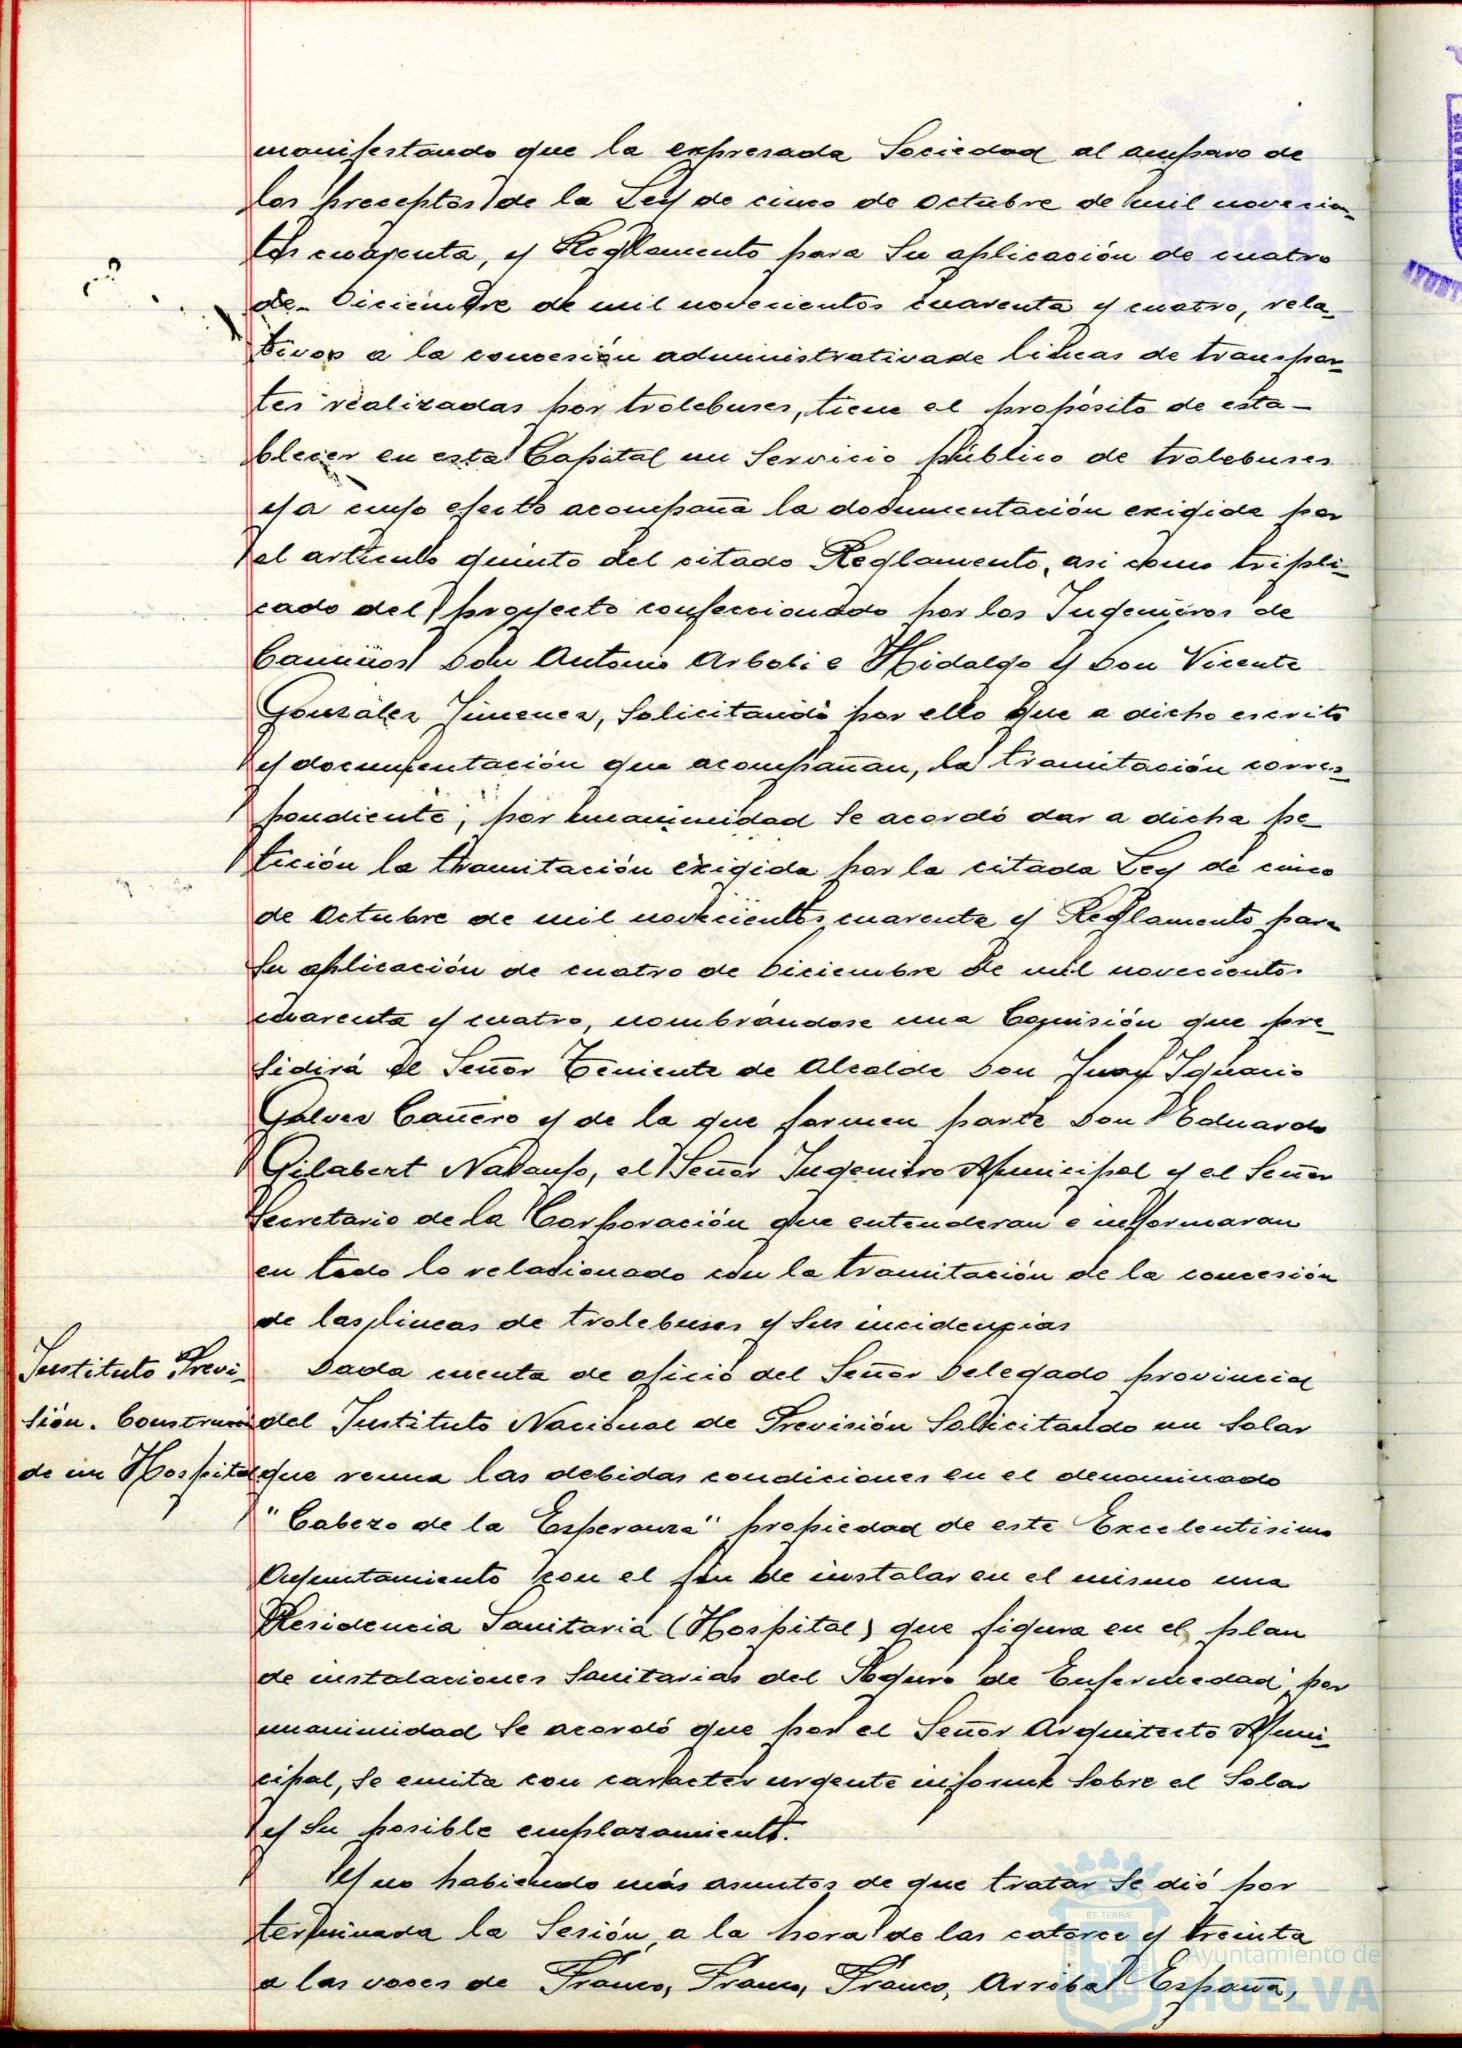 manifestando que la expresada Sociedad al amparo de
los preceptos de la Ley de cinco de Octubre de mil novecien-
tos cuarenta, y Reglamento para Su aplicación de cuatro
de Diciembre de mil novecientos cuarenta y cuatro, rela-
tivos a la concesión administrativa de lineas de transpor-
tes realizadas por trolebuses, tiene el propósito de esta-
blecer en esta Capital un Servicio Público de trolebuses
y a cuyo efecto acompaña la documentación exigida por
el articulo quinto del citado Reglamento, asi como tripli-
cado del proyecto confeccionado por los Ingenieros de
Caminos Don Antonio Arboli e Hidalgo y Don Vicente
González Jimenez, Solicitando por ello que a dicho escrito
y documentación que acompañan, la tramitación corres-
pondiente; por unanimidad Se acordó dar a dicha pe-
tición la tramitación exigida por la citada Ley de cinco
de Octubre de mil novecientos cuarenta y Reglamento para
Su aplicación de cuatro de Diciembre de mil novecientos
cuarenta y cuatro, nombrándose una Comisión que pre-
Sidirá el Señor Teniente de Alcalde Don Juan Ignacio
Galvez Cañero y de la que formen parte Don Eduardo
Gilabert, el Señor Ingeniero Municipal y el Señor
Secretario de la Corporación que entenderan e informaran
en todo lo relacionado con la tramitación de la concesión
de las lineas de trolebuses y Sus incidencias
Instituto Previ-
Sión. Construcc
de un Hospital
Dada cuenta de oficio del Señor Delegado provincial
del Instituto Nacional de Previsión Solicitando un Solar
que reuna las debidas condiciones en el denominado
"Cabezo de la Esperanza" propiedad de este Excelentisimo
Ayuntamiento con el fin de instalar en el mismo una
Residencia Sanitaria (Hospital) que figura en el plan
de instalaciones Sanitarias del Seguro de Enfermedad, por
unanimidad Se acordó que por el Señor Arquitecto Muni-
cipal, Se emita con caracter urgente informe Sobre el Solar
y Su posible emplazamiento.
Y no habiendo más asuntos de que tratar Se dió por
terminada la Sesión, a la hora de las catorce y treinta
a las voces de Franco, Franco, Franco, Arriba España,
ET TERRÆ
Ayuntamiento de
HUELVA